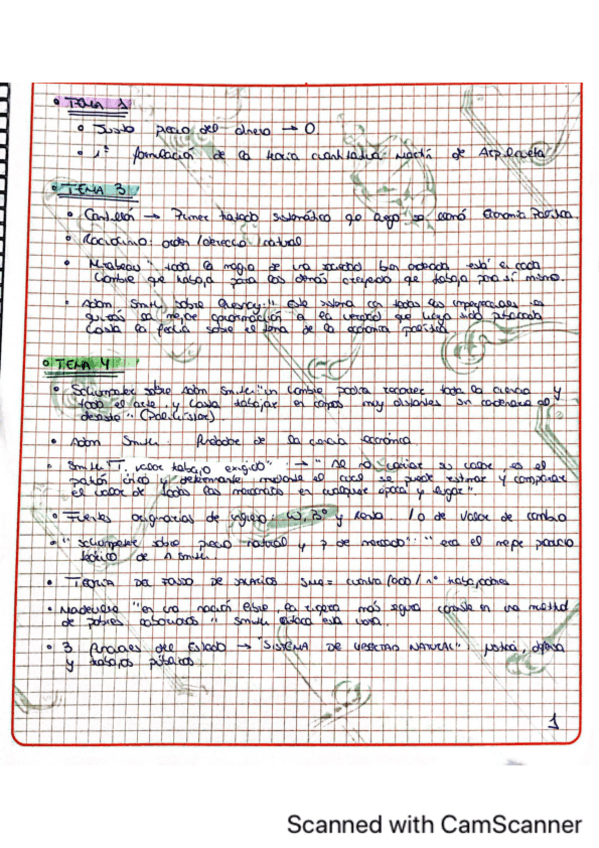 • TEMA 1
• Justo precio del dinero → 0
• 1ª formulación de la teoría cuantitativa: Martín de Azpilcueta
• TEMA 3
• Cantillón → Primer tratado sistemático que luego se llamó Economía Política.
• Raciocinio: orden/derecho natural
• Mirabeau " toda la magia de una sociedad bien ordenada está en cada
hombre que trabaja para los demás creyendo que trabaja para sí mismo.
• Adam Smith sobre Quesnay: " Este sistema con todas las imperfecciones es
quizás la mejor aproximación a la verdad que haya sido publicada
hasta la fecha sobre el tema de la economía política
• TEMA 4
• Schumpeter sobre Adam Smith "un hombre podía recorrer toda la ciencia y
todo el arte y hasta trabajar en campos muy distantes sin condenarse al
desastre" (Policlisior)
• Adam Smith: fundador de la ciencia económica
• Smith T. valor trabajo exigido": → " Al no variar su valor, es el
patrón único y determinante mediante el cual se puede estimar y comparar
el valor de todas las mercancías en cualquier época y lugar"
• Fuentes originarias de ingreso: w, Bº y Renta. /o de valor de cambio
• " Schumpeter sobre precio natural y P de mercado": " era el mejor
teórico de A. Smith.
• TEORÍA DEL FONDO DE SALARIOS
• Mandeville "en una nación libre, la riqueza más segura consiste en una multitud
de pobres laboriosos " Smith esta
• 3 funciones del Estado → "SISTEMA DE LIBERTAD NATURAL": justicia, defensa
y trabajos públicos.
1
Scanned with CamScanner